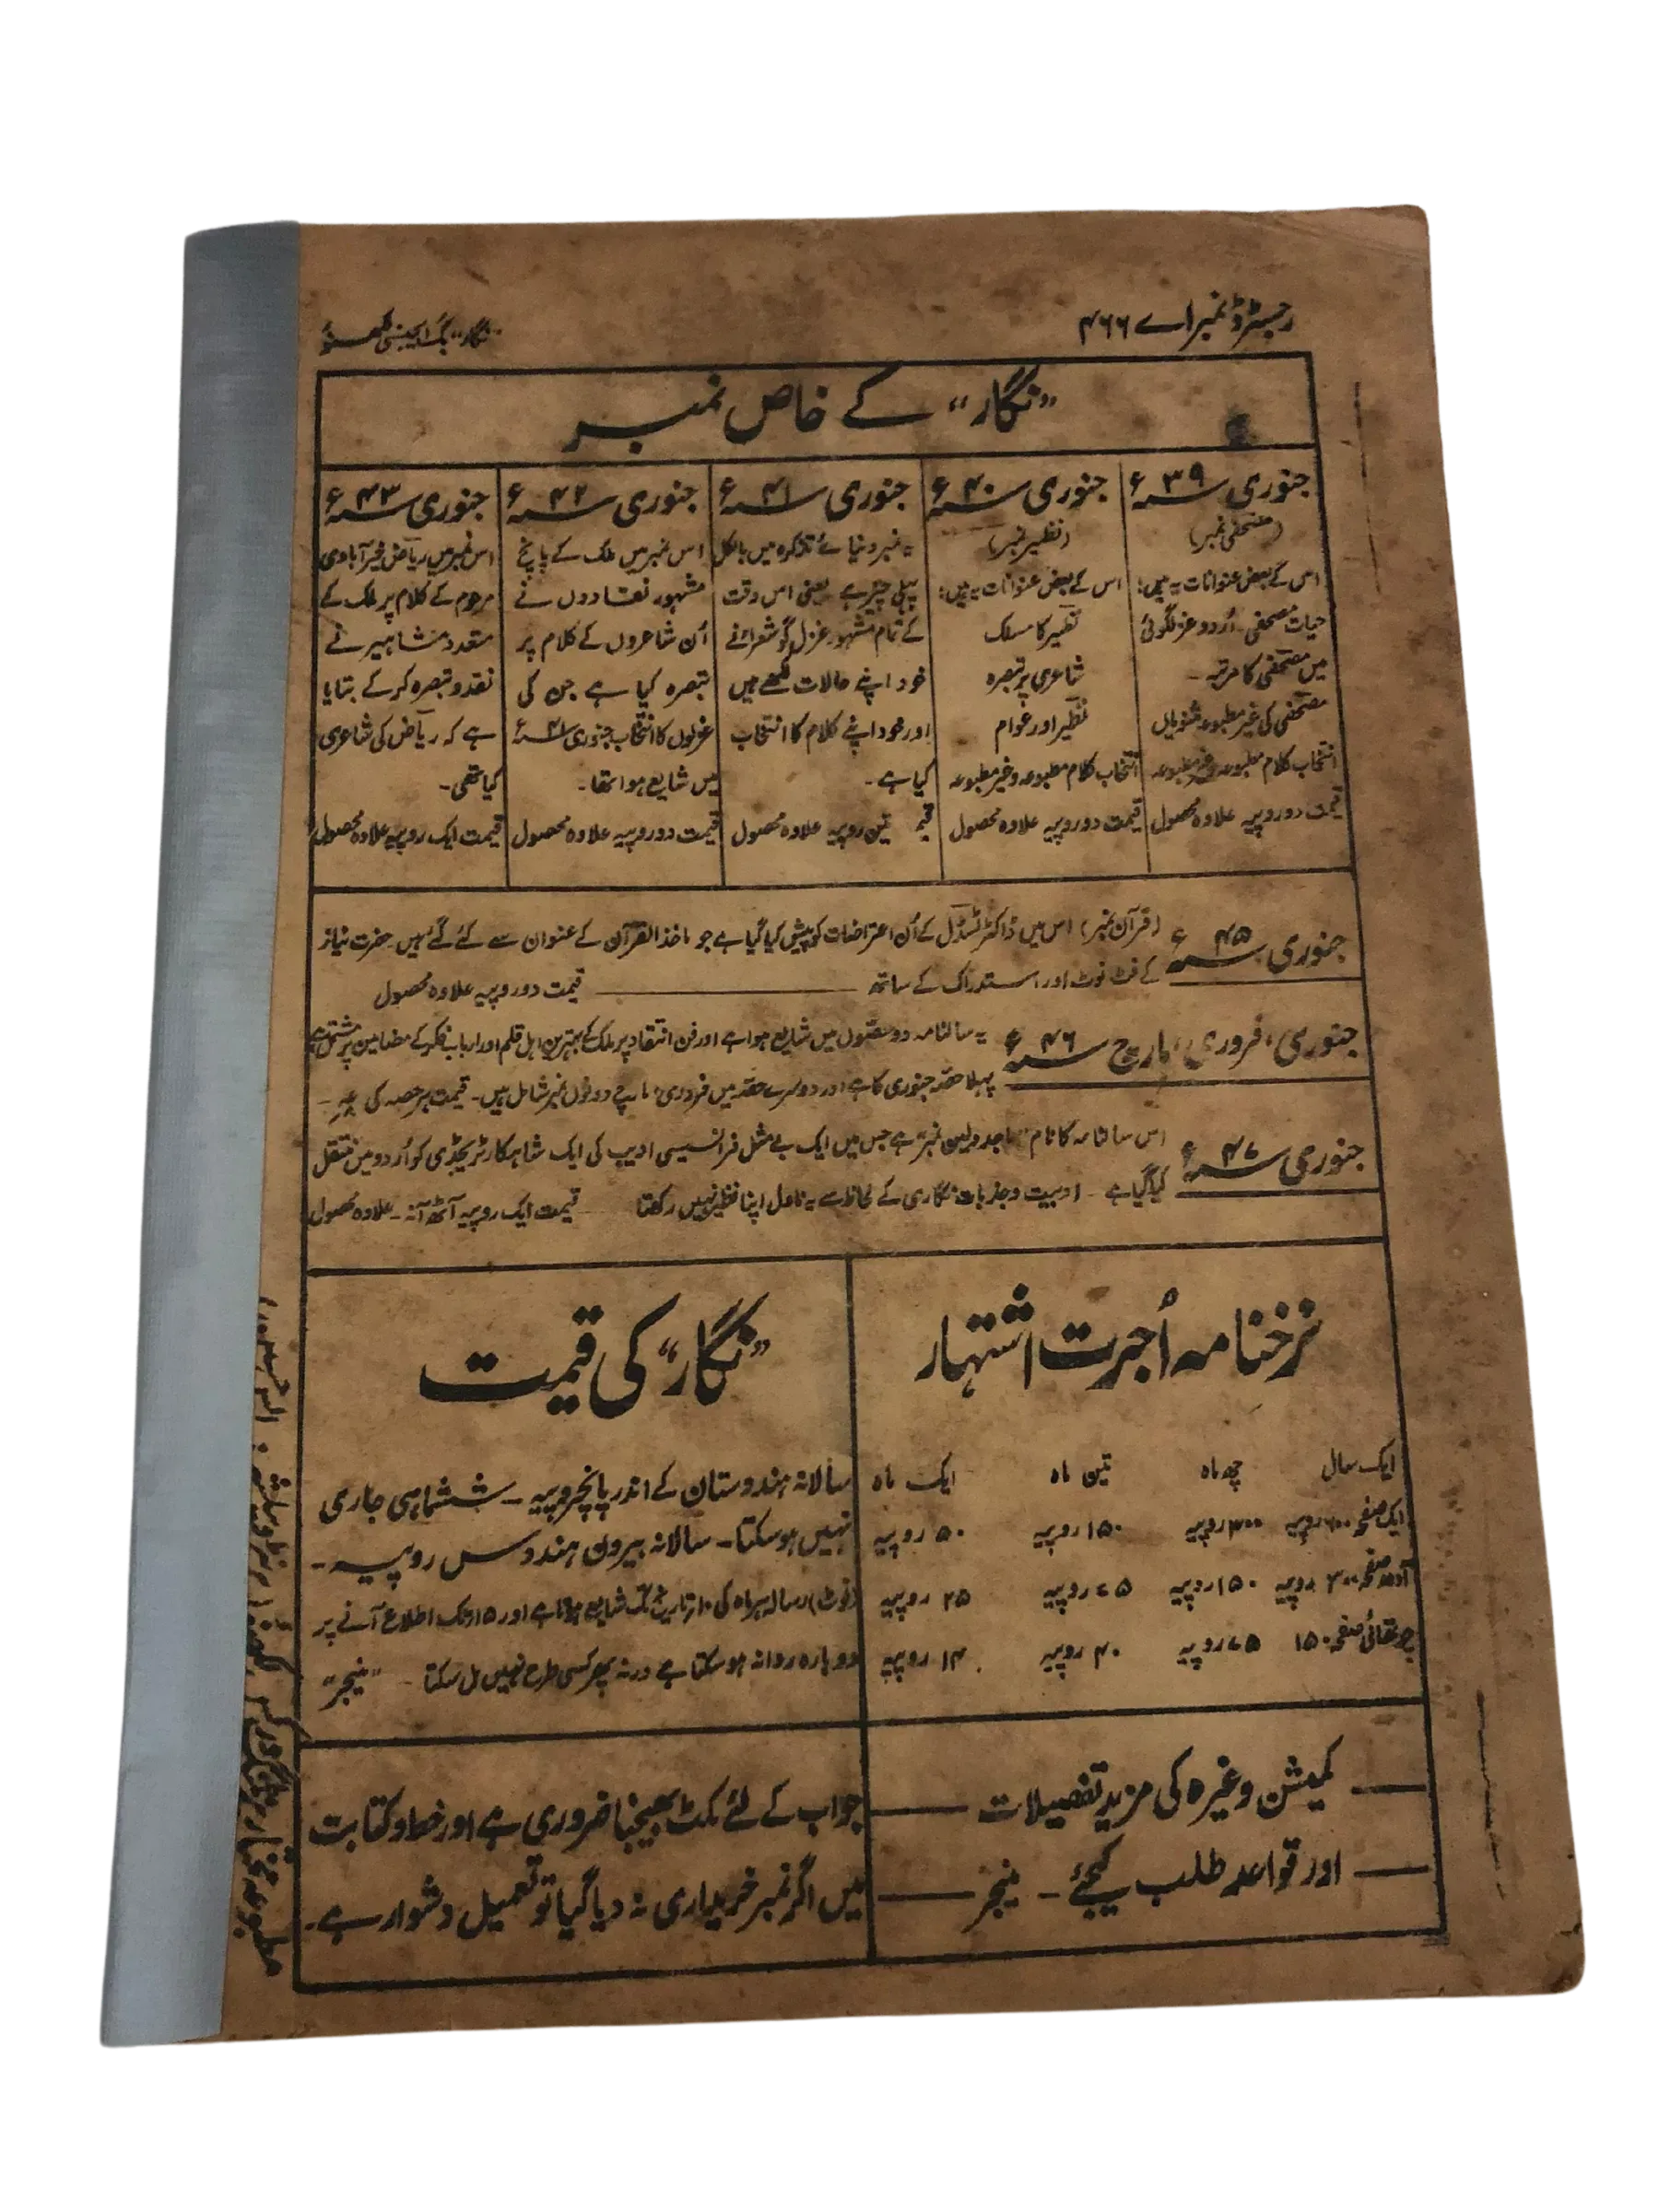 رجسٹرڈ نمبر اے ۴۶۶
"نگار" بک ایجنسی لکھنؤ
"نگار" کے خاص نمبر
جنوری سنہ ۳۹ء
(مصحفی نمبر)
اس کے بعض عنوانات یہ ہیں:
حیات مصحفی۔ اُردو غزلگوئی
میں مصحفی کا مرتبہ۔
مصحفی کی غیر مطبوعہ مثنویاں
انتخاب کلام مطبوعہ و غیر مطبوعہ
قیمت دو روپیہ علاوہ محصول
جنوری سنہ ۴۰ء
(نظیر نمبر)
اس کے بعض عنوانات یہ ہیں:
نظیر کا مسلک
شاعری پر تبصرہ
نظیر اور عوام
انتخاب کلام مطبوعہ و غیر مطبوعہ
قیمت دو روپیہ علاوہ محصول
جنوری سنہ ۴۱ء
یہ نمبر دنیائے تذکرہ میں بالکل
پہلی چیز ہے یعنی اس وقت
کے تمام مشہور غزل گو شعراء نے
خود اپنے حالات لکھے ہیں
اور خود اپنے کلام کا انتخاب
کیا ہے۔
تین روپیہ علاوہ محصول
جنوری سنہ ۴۲ء
اس نمبر میں ملک کے پانچ
مشہور نقادوں نے
اُن شاعروں کے کلام پر
تبصرہ کیا ہے جن کی
غزلوں کا انتخاب جنوری سنہ ۴۱ء
میں شایع ہوا تھا۔
قیمت دو روپیہ علاوہ محصول
جنوری سنہ ۴۳ء
اس نمبر میں ریاض خیرآبادی
مرحوم کے کلام پر ملک کے
متعدد مشاہیر نے
نقد و تبصرہ کر کے بتایا
ہے کہ ریاض کی شاعری
کیا تھی۔
قیمت ایک روپیہ علاوہ محصول
جنوری سنہ ۴۵ء (قرآن نمبر) اس میں ڈاکٹر ٹسڈل کے اُن اعتراضات کو پیش کیا گیا ہے جو ماخذ القرآن کے عنوان سے کئے گئے ہیں۔ حضرت نیاز
کے فٹ نوٹ اور استدراک کے ساتھ ——— قیمت دو روپیہ علاوہ محصول
جنوری، فروری، مارچ سنہ ۴۶ء یہ سالنامہ دو حصوں میں شایع ہوا ہے اور فن انتقاد پر ملک کے بہترین اہل قلم اور ارباب فکر کے مضامین پر مشتمل ہے
پہلا حصہ جنوری کا ہے اور دوسرے حصہ میں فروری، مارچ دونوں نمبر شامل ہیں۔ قیمت ہر حصہ کی
جنوری سنہ ۴۷ء اس سالنامہ کا نام "ماجدولین نمبر" ہے جس میں ایک بے مثل فرانسیسی ادیب کی ایک شاہکار ٹریجڈی کو اُردو میں منتقل
کیا گیا ہے۔ ادبیت و جذبات نگاری کے لحاظ سے یہ ناول اپنا نظیر نہیں رکھتا قیمت ایک روپیہ آٹھ آنہ۔ علاوہ محصول
نرخنامہ اُجرت اشتہار
ایک سال چھ ماہ تین ماہ ایک ماہ
ایک صفحہ ۶۰۰ روپیہ ۳۰۰ روپیہ ۱۵۰ روپیہ ۵۰ روپیہ
آدھا صفحہ ۳۰۰ روپیہ ۱۵۰ روپیہ ۷۵ روپیہ ۲۵ روپیہ
چوتھائی صفحہ ۱۵۰ ۷۵ روپیہ ۴۰ روپیہ ۱۴ روپیہ
"نگار" کی قیمت
سالانہ ہندوستان کے اندر پانچروپیہ۔ ششماہی جاری
نہیں ہو سکتا۔ سالانہ بیرون ہند دس روپیہ۔
(نوٹ) رسالہ ہر ماہ کی ۱۰ تاریخ تک شایع ہوتا ہے اور ۱۵ تک اطلاع آنے پر
دوبارہ روانہ ہو سکتا ہے ورنہ پھر کسی طرح نہیں مل سکتا۔ "منیجر"
کمیشن وغیرہ کی مزید تفصیلات
اور قواعد طلب کیجئے۔ منیجر
جواب کے لئے ٹکٹ بھیجنا ضروری ہے اور خط و کتابت
میں اگر نمبر خریداری نہ دیا گیا تو تعمیل دشوار ہے۔